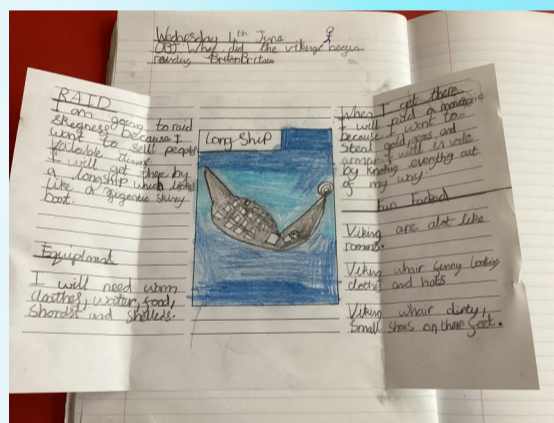 Wednesday 4th June
OBJ Why did the vikings begin
raiding Britain
RAID
I am going to raid
skegness because I
want to sell people
I will get there by
a longship which looks
like a
boat.
Equiptment
I will need worm
clothes, water, food,
Shords and Shelleds.
Long Ship
When I get there
I will raid a
because I want to
Steal gold, and
I will
by knoking everthig out
of my way.
fun facked
Viking are alot like
romans.
Viking whair funny looking
clothes and hats
Viking whair dirty,
Small shoes on there feet.